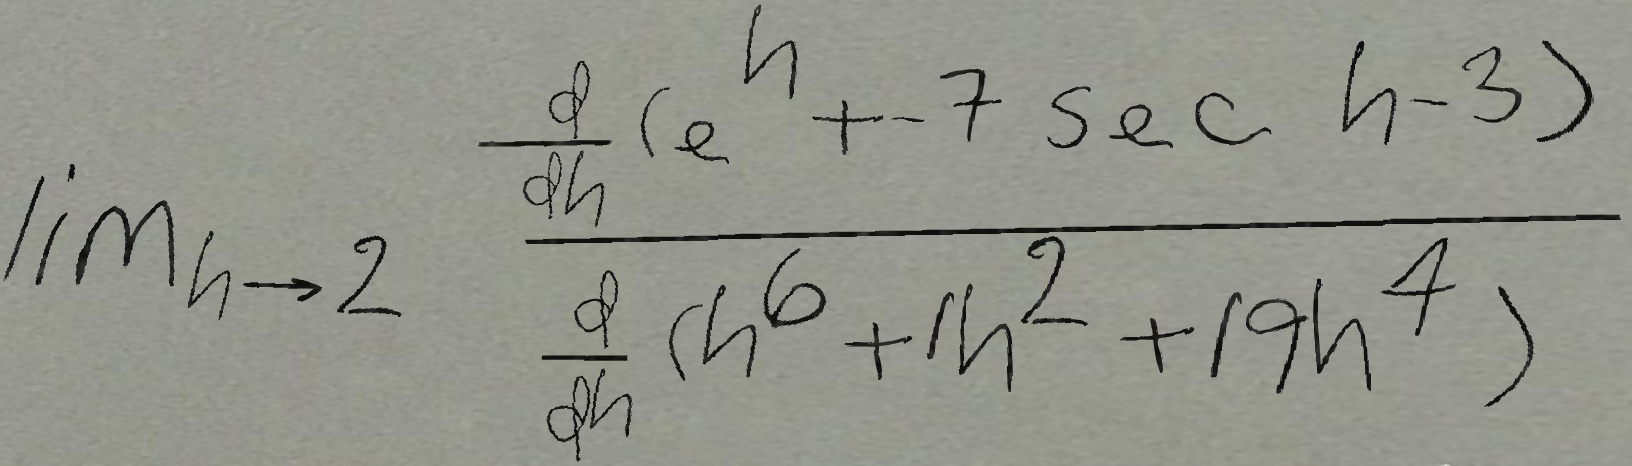 \lim_{h \to 2} \frac{\frac{d}{dh}(e^h + -7 \sec h - 3)}{\frac{d}{dh}(h^6 + 1h^2 + 19h^4)}